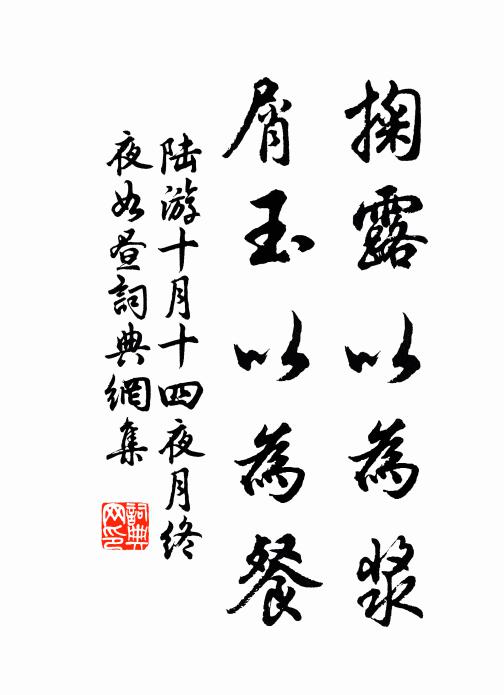 掬露以為漿
屑玉以為餐
陸游十月十四夜月終
夜如晝詞典網集
詞典
网印